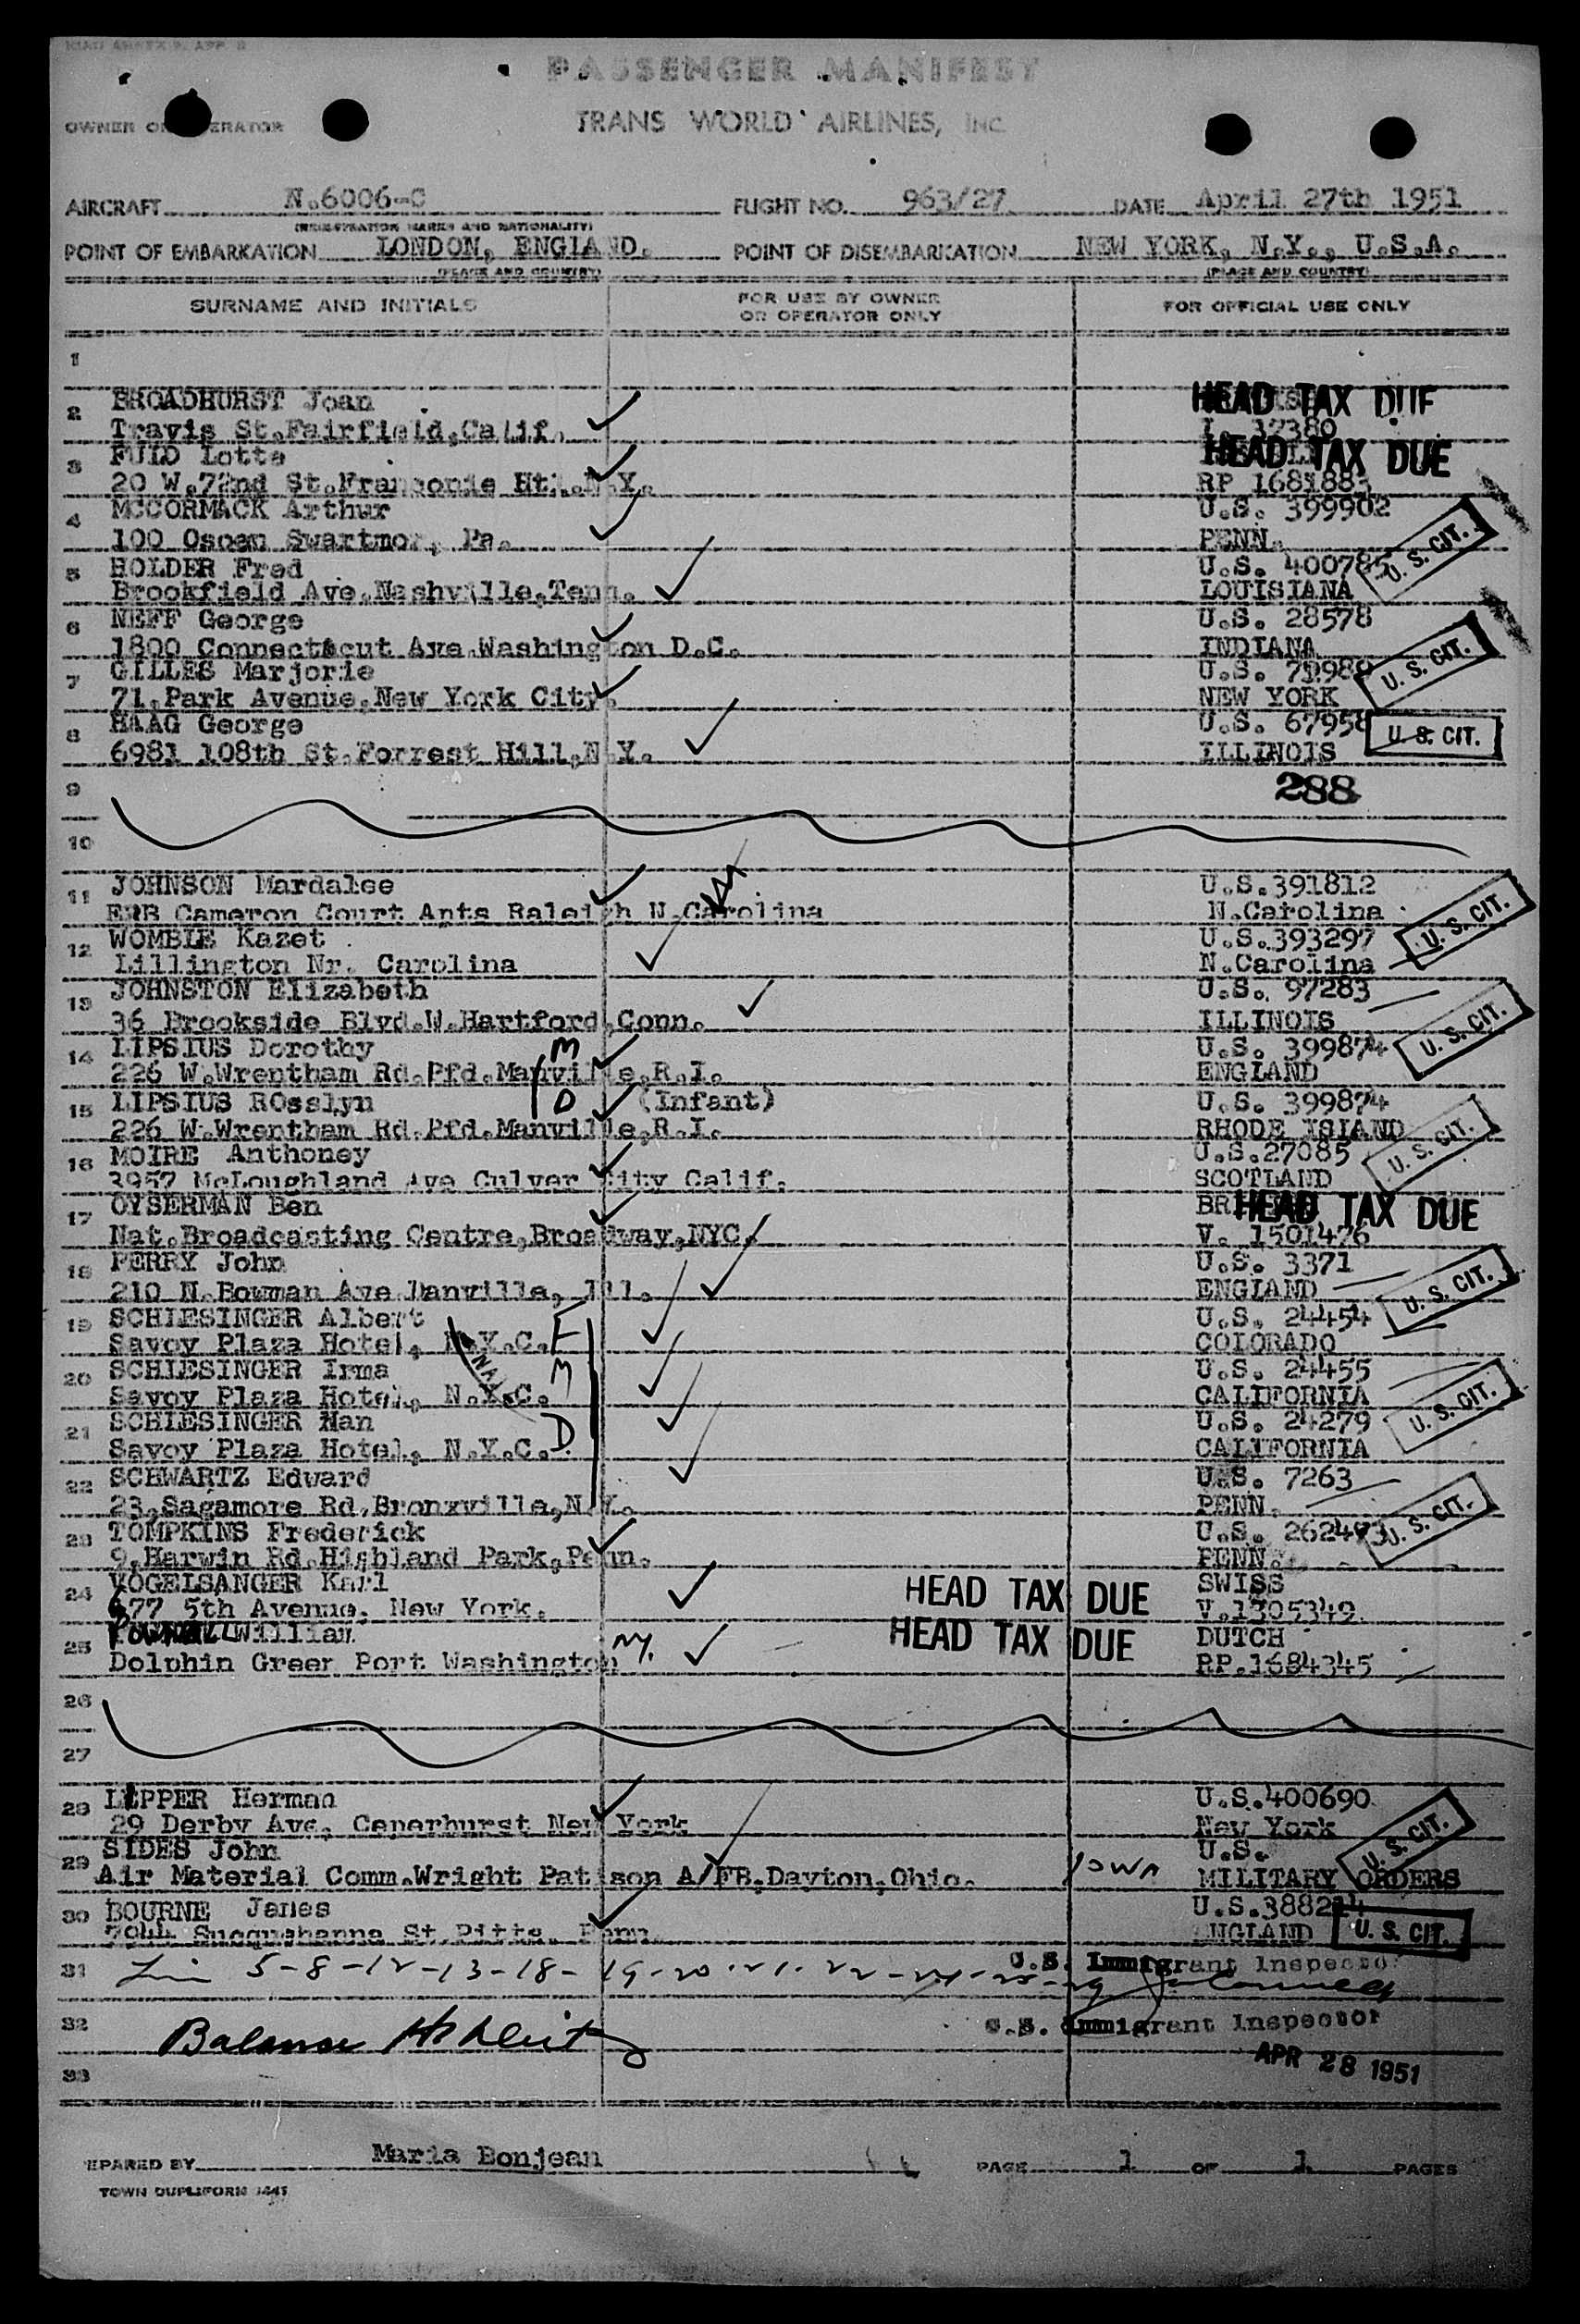 ICAO ANNEX 9, APP. 2
PASSENGER MANIFEST
OWNER OR OPERATOR TRANS WORLD AIRLINES, INC.
AIRCRAFT N.6006-C FLIGHT NO. 963/27 DATE April 27th 1951
(REGISTRATION MARKS AND NATIONALITY)
POINT OF EMBARKATION LONDON, ENGLAND. POINT OF DISEMBARKATION NEW YORK, N.Y., U.S.A.
(PLACE AND COUNTRY) (PLACE AND COUNTRY)
SURNAME AND INITIALS FOR USE BY OWNER OR OPERATOR ONLY FOR OFFICIAL USE ONLY
1
2 BROADHURST Joan HEAD TAX DUE
Travis St.Fairfield,Calif. I. 32380
3 FULD Lotte HEAD TAX DUE
20 W.72nd St.Franconie Htl.N.Y. RP 1681883
4 MCCORMACK Arthur U.S. 399902
100 Ogden Swartmor, Pa. PENN. U.S. CIT.
5 HOLDER Fred U.S. 400785
Brookfield Ave.Nashville,Tenn. LOUISIANA
6 NEFF George U.S. 28578
1800 Connecticut Ave.Washington D.C. INDIANA U.S. CIT.
7 GILLES Marjorie U.S. 71989
71,Park Avenue,New York City. NEW YORK
8 HAAG George U.S. 67958 U.S. CIT.
6981 108th St.Forrest Hill,N.Y. ILLINOIS
9 288
10
11 JOHNSON Mardalee U.S.391812
E2B Cameron Court Apts Raleigh N.Carolina N.Carolina U.S. CIT.
12 WOMBLE Kazet U.S.393297
Lillington Nr. Carolina N.Carolina
13 JOHNSTON Elizabeth U.S. 97283
36 Brookside Blvd.W.Hartford,Conn. ILLINOIS U.S. CIT.
14 LIPSIUS Dorothy M U.S. 399874
226 W.Wrentham Rd.Pfd.Manville,R.I. ENGLAND
15 LIPSIUS ROsslyn D (Infant) U.S. 399874
226 W.Wrentham Rd.Pfd.Manville,R.I. RHODE ISLAND U.S. CIT.
16 MOIRE Anthoney U.S.27085
3957 McLoughland Ave Culver City Calif. SCOTLAND
17 OYSERMAN Ben BR HEAD TAX DUE
Nat.Broadcasting Centre,Broadway,NYC. V. 1501476
18 PERRY John U.S. 3371
210 N.Bowman Ave Danville, Ill. ENGLAND U.S. CIT.
19 SCHIESINGER Albert U.S. 24454
Savoy Plaza Hotel, N.Y.C. F COLORADO
20 SCHIESINGER Irma U.S. 24455
Savoy Plaza Hotel, N.Y.C. M CALIFORNIA U.S. CIT.
21 SCHIESINGER Nan U.S. 24279
Savoy Plaza Hotel, N.Y.C. D. CALIFORNIA
22 SCHWARTZ Edward U.S. 7263
23,Sagamore Rd,Bronxville,N.Y. PENN. U.S. CIT.
23 TOMPKINS Frederick U.S. 262493
9,Harwin Rd.Highland Park,Penn. PENN.
24 VOGELSANGER Karl HEAD TAX DUE SWISS
677 5th Avenue. New York. V.1305349
25 William HEAD TAX DUE DUTCH
Dolphin Green Port Washington NY. RP.1684345
26
27
28 LEPPER Herman U.S.400690
29 Derby Ave, Ceperhurst New York New York U.S. CIT.
29 SIDES John U.S.
Air Material Comm.Wright Patison A/FB,Dayton,Ohio. IOWA MILITARY ORDERS
30 BOURNE James U.S.388214
7944 Susquehanna St.Pitts. Penn. ENGLAND U.S. CIT.
31 5-8-12-13-18-19-20-21-22-24-25-29 U.S. Immigrant Inspector
32 Balance U.S. Immigrant Inspector
33 APR 28 1951
PREPARED BY Maria Bonjean PAGE 1 OF 1 PAGES
TOWN DUPLIFORM 1445